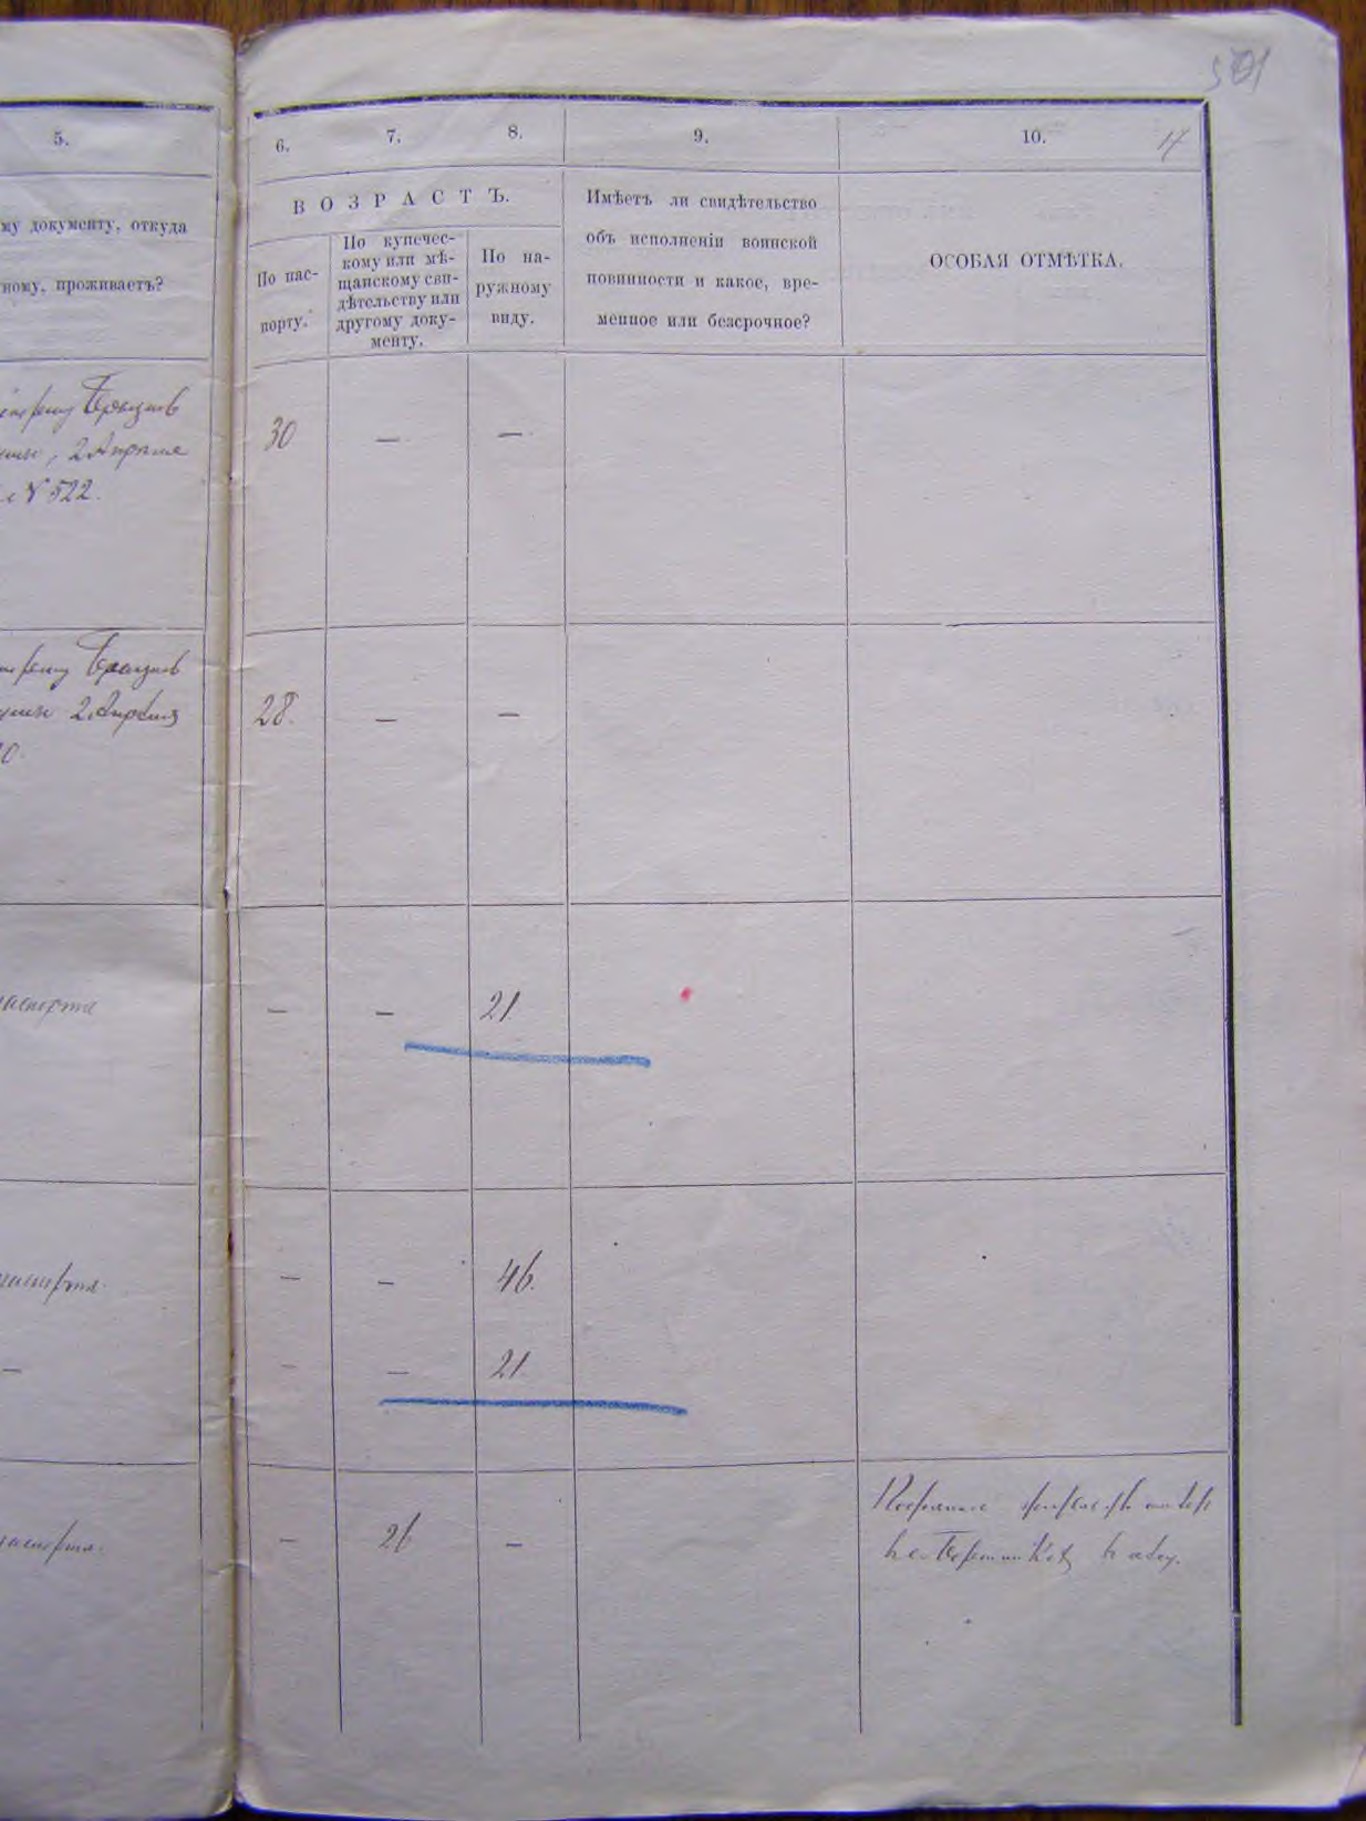 501
5.
6.
7.
8.
9.
10.
14
му документу, откуда
ному, проживаетъ?
ВОЗРАСТЪ.
По пас-
порту.
По купечес-
кому или мѣ-
щанскому сви-
дѣтельству или
другому доку-
менту.
По на-
ружному
виду.
Имѣетъ ли свидѣтельство
объ исполненіи воинской
повинности и какое, вре-
менное или безсрочное?
ОСОБАЯ ОТМѢТКА.
2 Апрѣля
№ 522.
30
—
—
2 Апрѣля
0.
28.
—
—
паспорта
—
—
21
паспорта
—
—
46.
—
—
—
21.
паспорта.
—
26
—